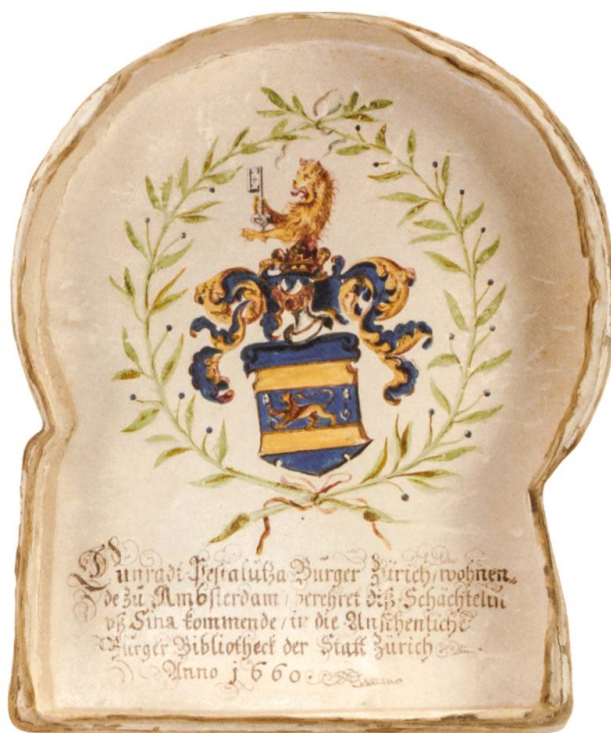 Cunradi Pestalutza Burger Zürich, wohnen-
de zu Ambsterdam, verehret diß Schächtelin
vß Sina kommende, in die Ansehenliche
Burger Bibliotheck der Statt Zürich
Anno 1660